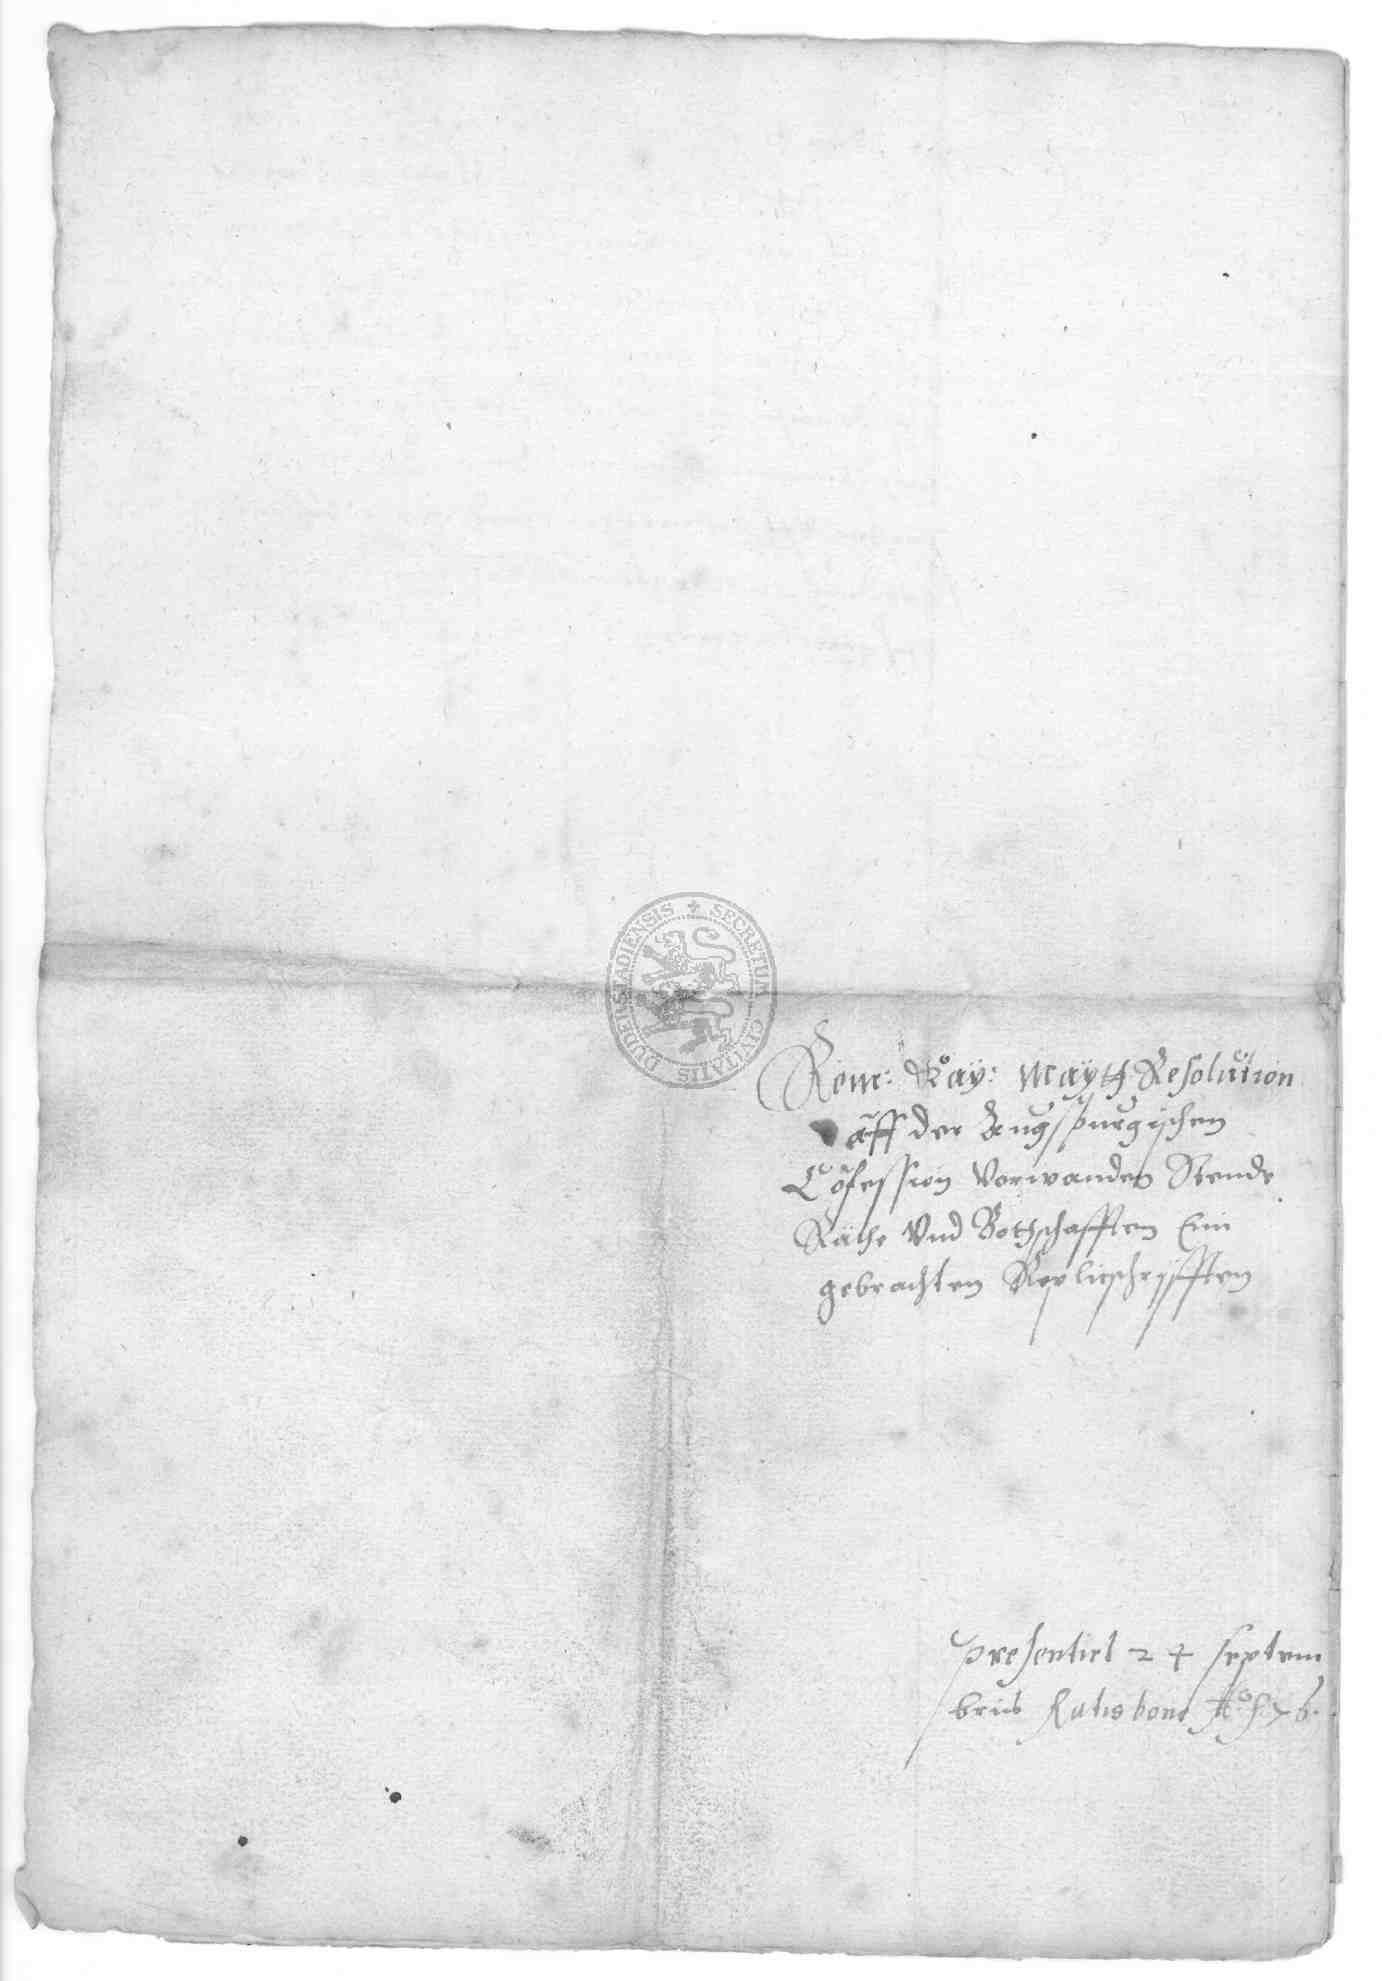 SECRETUM CIVITATIS DUDERSTADIENSIS
Röm: Kay: Mayth Resolution
auff der Augspurgischen
Cöfession Vorwanden Stende
Räthe Vnd Bothschafften Ein
gebrachten Replicschryfften
presentirt 24 septem
bris Ratisbone Aō 76.